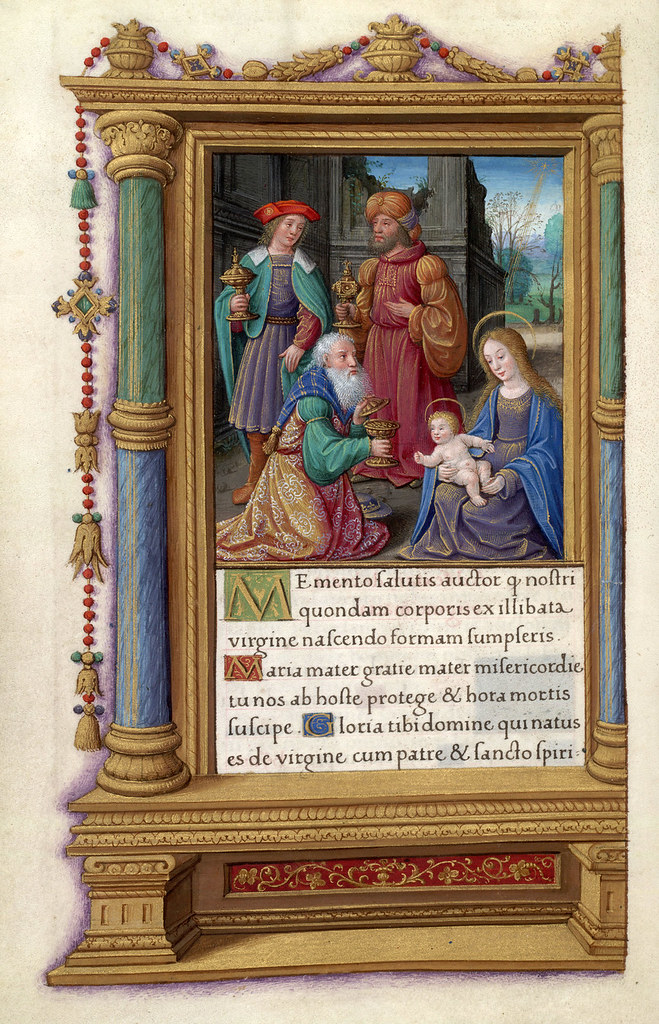 MEmento salutis auctor q nostri
quondam corporis ex illibata
virgine nascendo formam sumpseris.
Maria mater gratie mater misericordie
tu nos ab hoste protege & hora mortis
suscipe. Gloria tibi domine qui natus
es de virgine cum patre & sancto spiri: